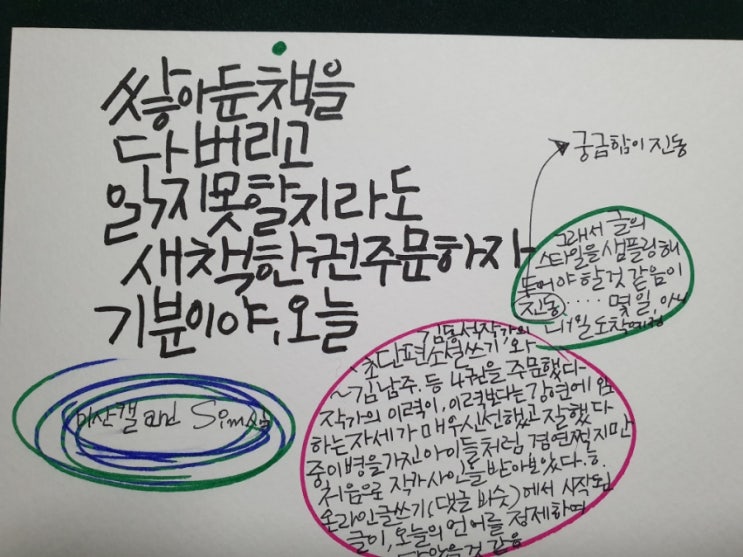 쌓아둔 책을
다 버리고
읽지 못할지라도
새책 한권 주문하자
기분이야, 오늘
궁금함이 진동
그래서 글의
스타일을 샘플링해
두어야 할것 같음이
진동.... 몇 일, 아니
내일 도착예정
김동식작가의
초단편 소설쓰기, 와
~김남주, 등 4권을 주문했다
작가의 이력이, 이력보다는 강연에 임
하는 자세가 매우 신선했고 잘했다
중이병을 가진 아이들처럼, 겸연쩍지만
처음으로 작가사인을 받아보았다. ㅎ.
온라인 글쓰기 (댓글 바숫)에서 시작된
글이, 오늘의 언어를 정제하여
담았을것 같음
미산캘 and Sim심